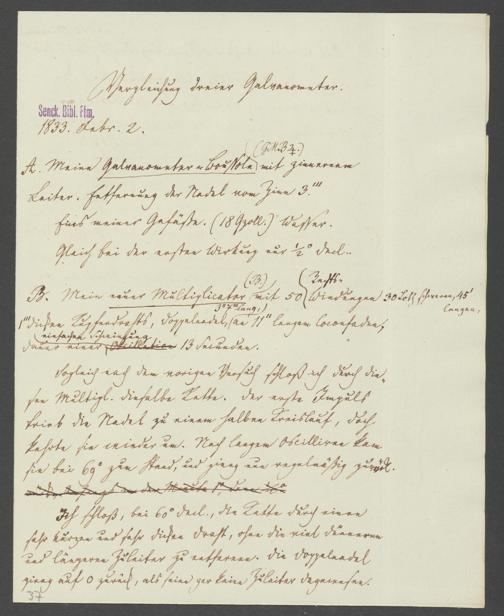 Vergleichung dreier Galvanometer.
Senck. Bibl. Ffm.
1833. Febr. 2.
A. Meine Galvanometer-Boussole mit zinnernem
Leiter. Entfernung der Nadel vom Zinn 3.'''
Eins meiner Gefäße. (18 Qzoll.) Wasser.
Gleich bei der ersten Wirkung nur ½° decl.
(B)
B. Mein neuer Multiplicator mit 50 Windungen
1''' dicken Kupferdrahts, Doppelnadel, an 11'' langem Coconfaden,
Dauer einer einfachen Schwingung 13 Secunden.
Sogleich nach dem vorigen Versuch schloß ich durch die-
sen Multipl. dieselbe Kette. Der erste Impuls
trieb die Nadel zu einem halben Kreislauf, doch
kehrte sie wieder um. Nach langem Oscilliren kam
sie bei 69° zum Stand, und ging nun regelmäßig zurück.
Ich schloß, bei 60° decl., die Kette durch einen
sehr kurzen und sehr dicken Draht, ohne die viel dünneren
und längeren Zuleiter zu entfernen. Die Doppelnadel
ging auf 0 zurück, als seien gar keine Zuleiter dagewesen.
37